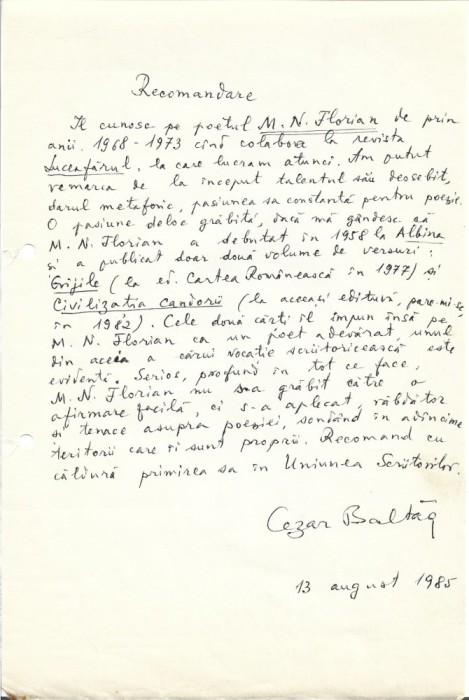 Recomandare
Îl cunosc pe poetul M. N. Florian de prin
anii 1968-1973 cînd colabora la revista
Luceafărul, la care lucram atunci. Am putut
remarca de la început talentul său deosebit,
darul metaforic, pasiunea sa constantă pentru poezie.
O pasiune deloc grăbită, dacă mă gîndesc că
M. N. Florian a debutat în 1958 la Albina
și a publicat doar două volume de versuri:
Grijile (la ed. Cartea Românească în 1977) și
Civilizația candorii (la aceeași editură, pare-mi-se,
în 1982). Cele două cărți îl impun însă pe
M. N. Florian ca un poet adevărat, unul
din aceia a cărui vocație scriitoricească este
evidentă. Serios, profund în tot ce face,
M. N. Florian nu s-a grăbit către o
afirmare facilă, ci s-a aplecat, răbdător
și tenace asupra poeziei, sondînd în adîncime
teritorii care îi sunt proprii. Recomand cu
căldură primirea sa în Uniunea Scriitorilor.
Cezar Baltag
13 august 1985